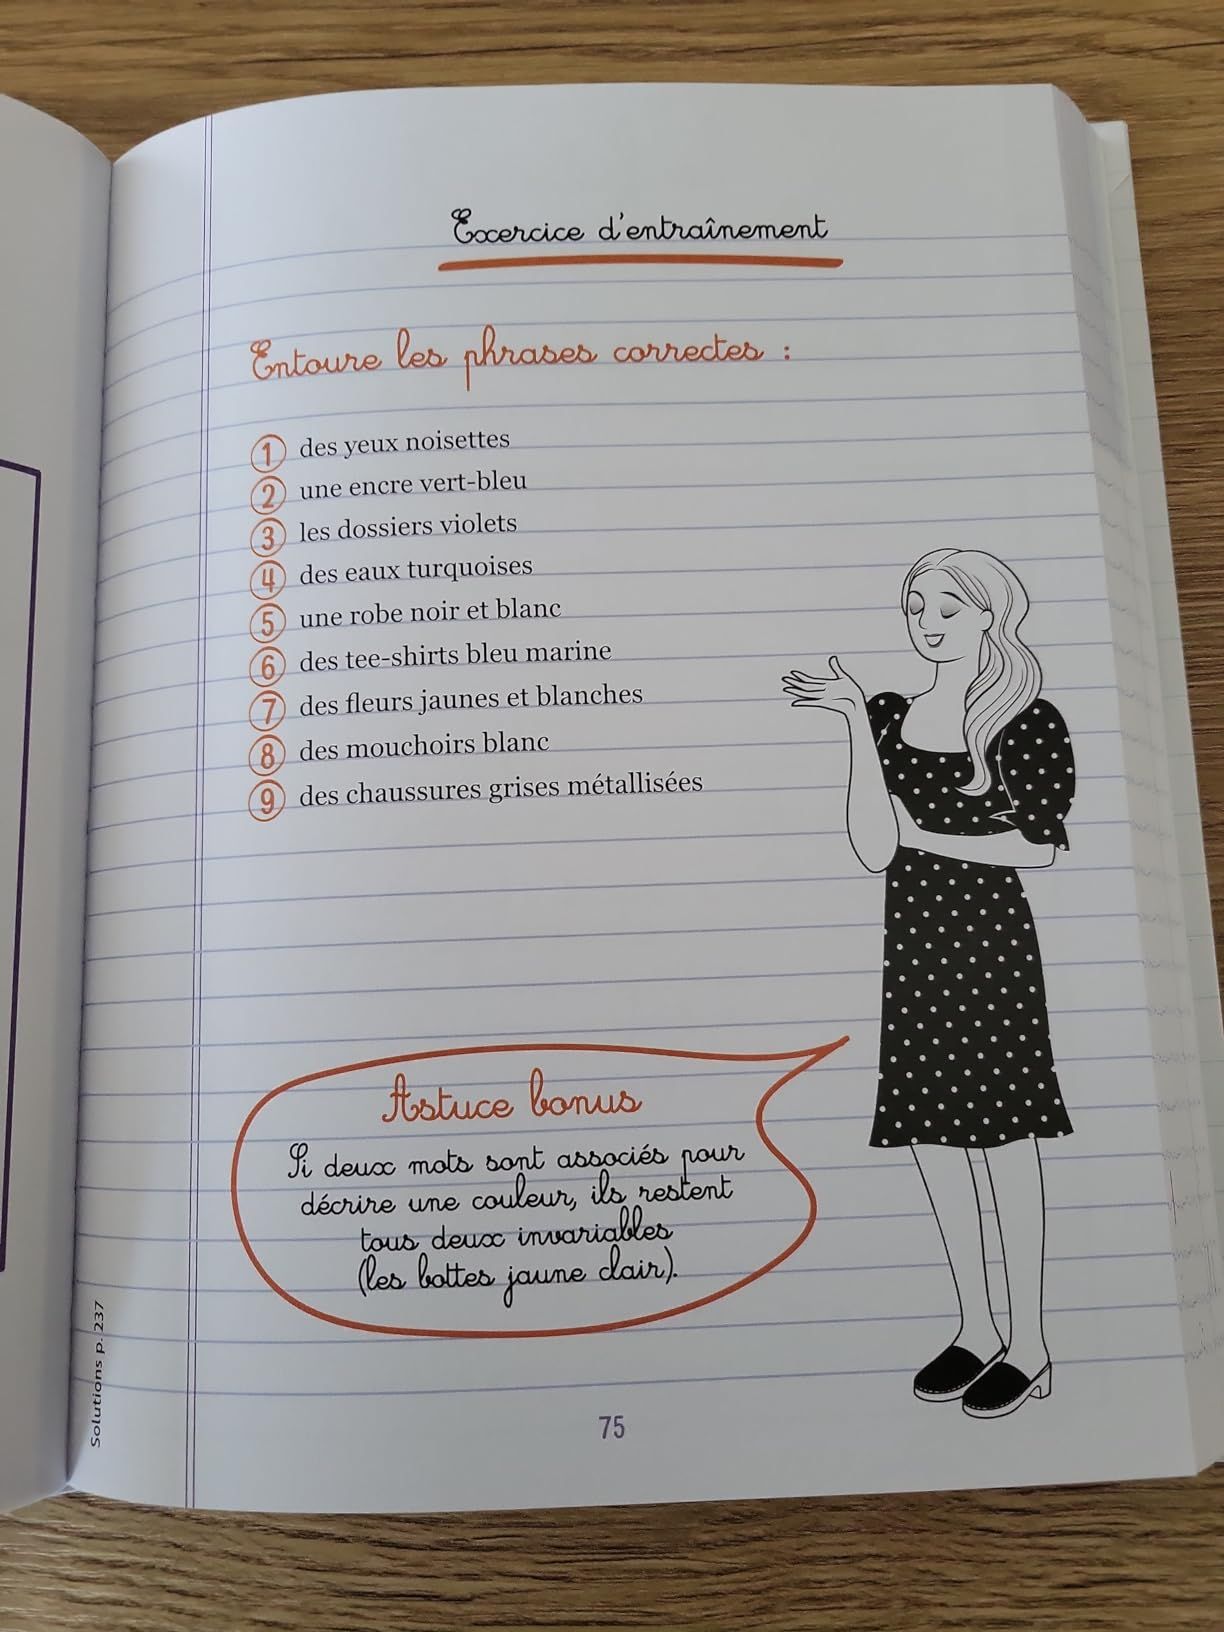 Exercice d'entraînement
Entoure les phrases correctes :
1 des yeux noisettes
2 une encre vert-bleu
3 les dossiers violets
4 des eaux turquoises
5 une robe noir et blanc
6 des tee-shirts bleu marine
7 des fleurs jaunes et blanches
8 des mouchoirs blanc
9 des chaussures grises métallisées
Astuce bonus
Si deux mots sont associés pour
décrire une couleur, ils restent
tous deux invariables
(les bottes jaune clair).
Solutions p. 237
75